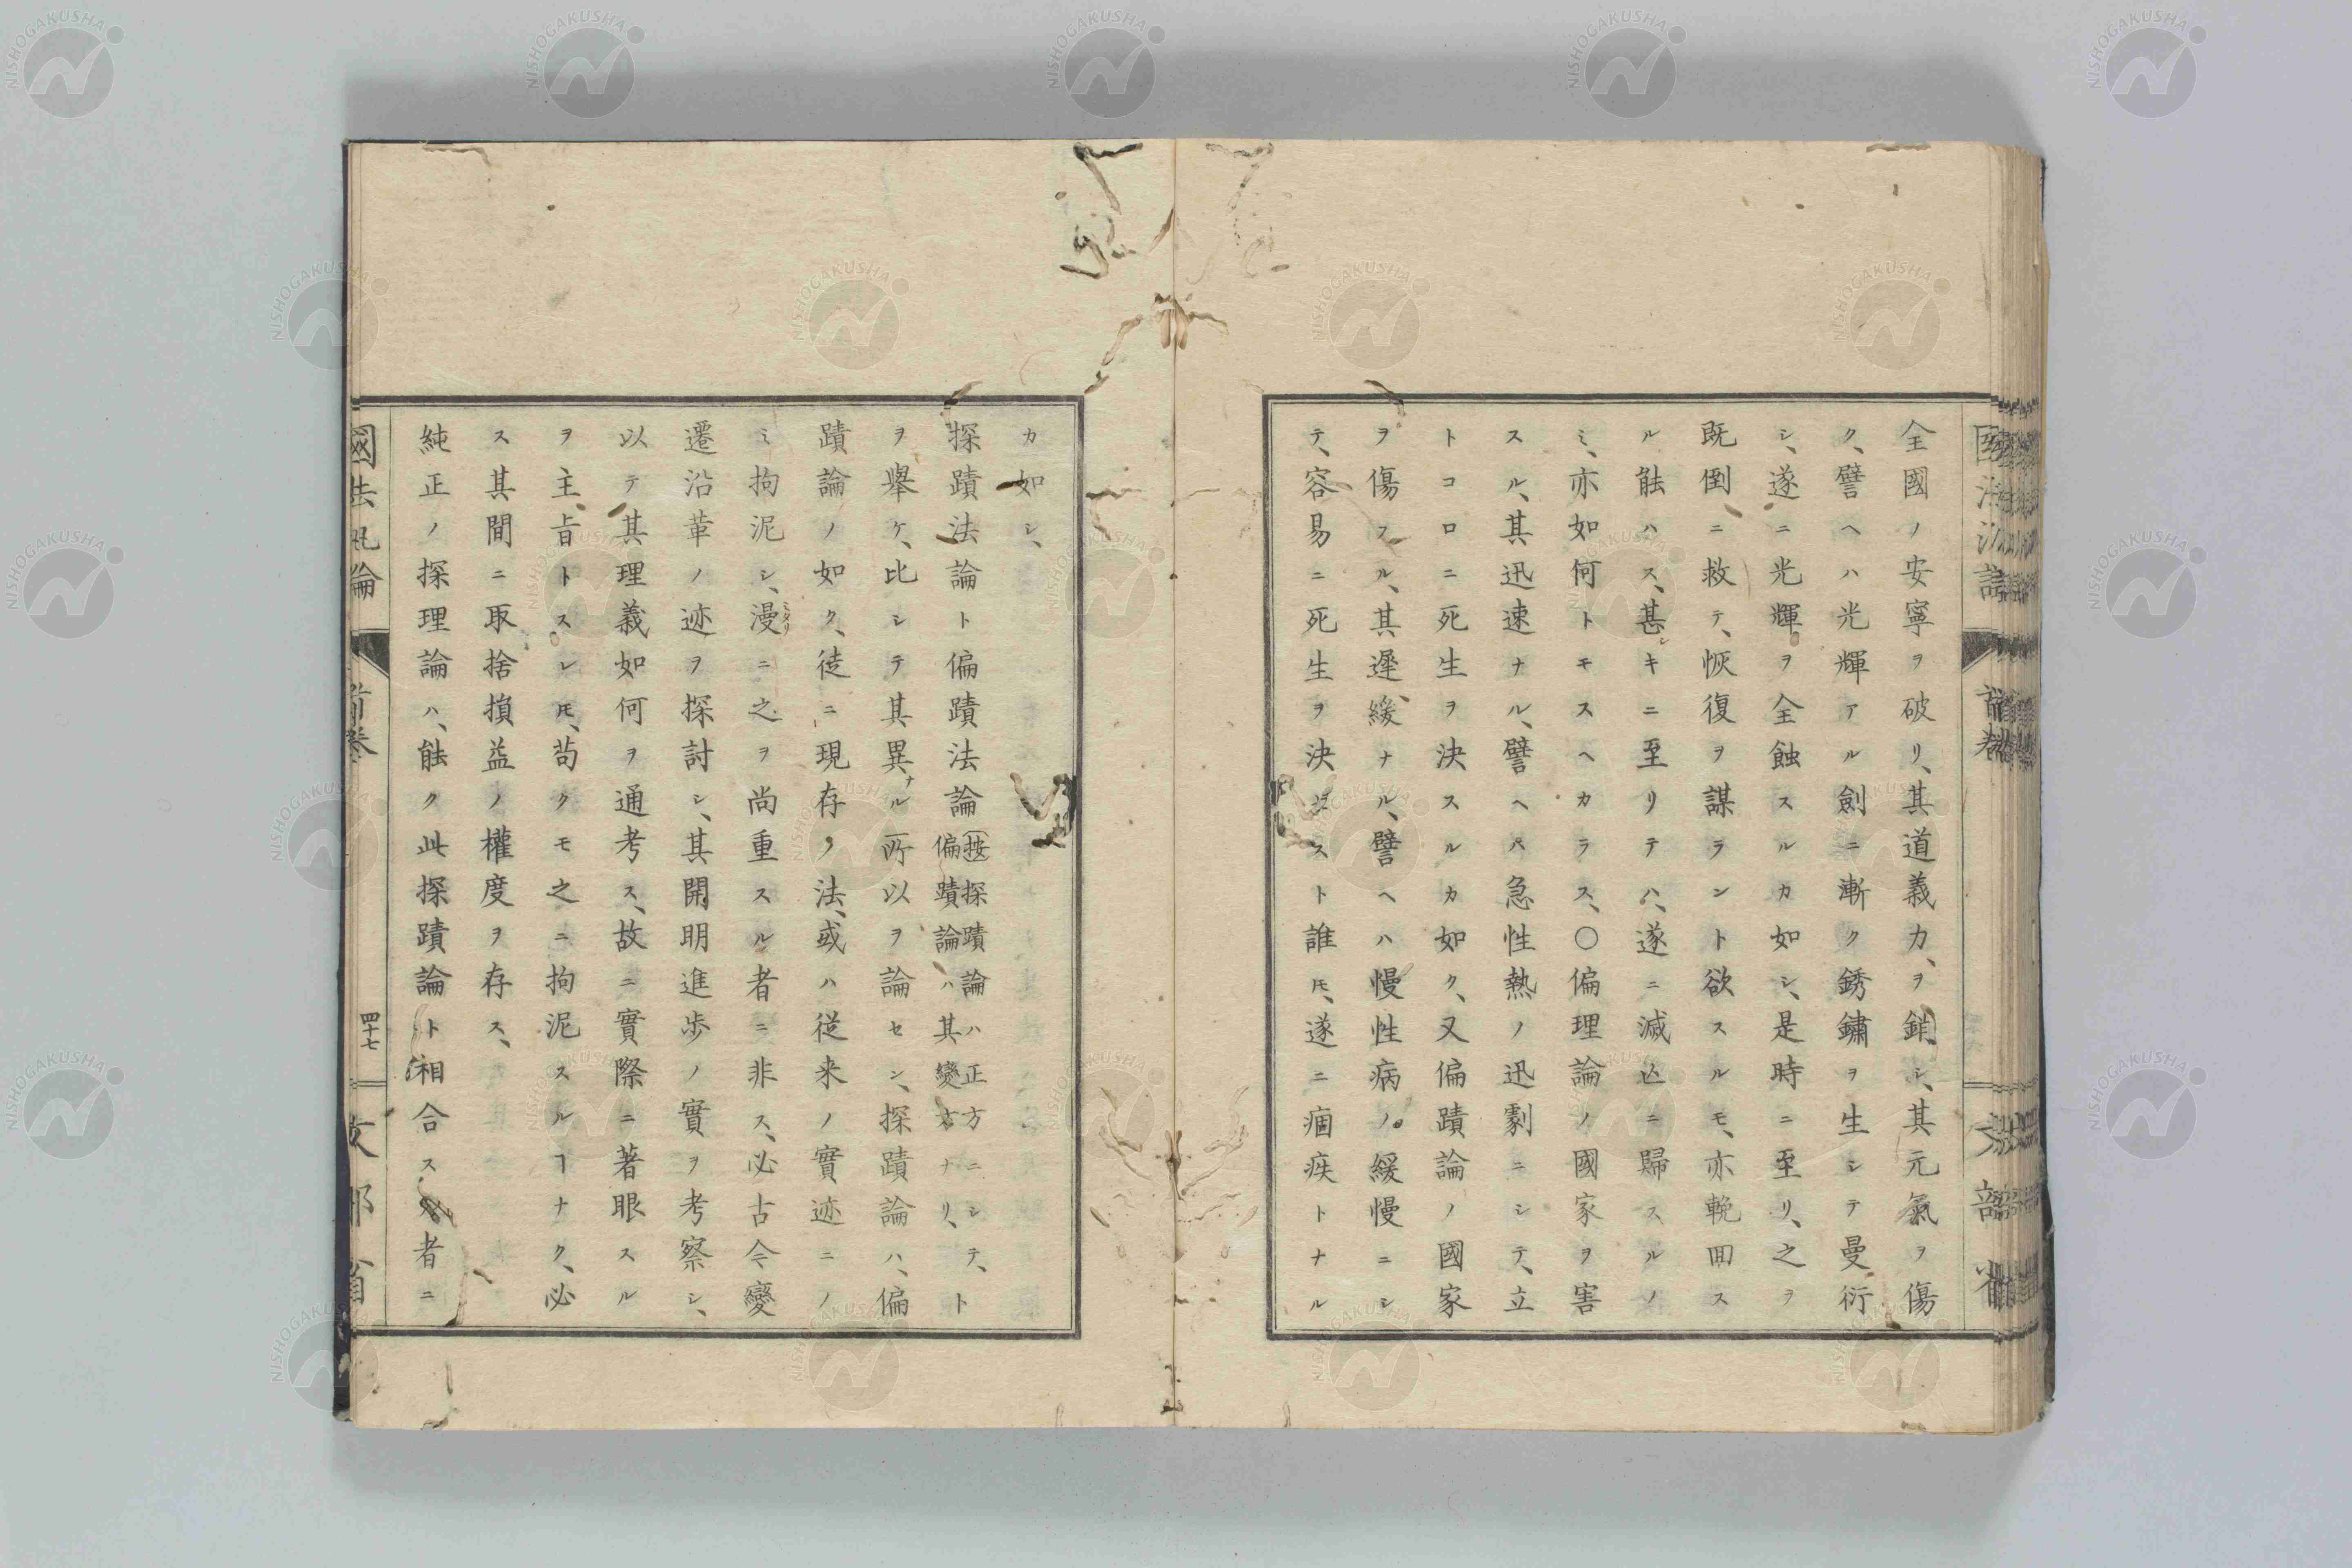 全國ノ安寧ヲ破リ、其道義力、ヲ銷シ、其元氣ヲ傷
ク、譬ヘハ光輝アル劍ニ漸ク銹鏽ヲ生シテ曼衍
シ、遂ニ光輝ヲ全蝕スルカ如シ、是時ニ至リ、之ヲ
既倒ニ救テ、恢復ヲ謀ラント欲スルモ、亦輓回ス
ル能ハス、甚シキニ至リテハ、遂ニ滅亡ニ歸スルノ
ミ、亦如何トモスヘカラス、〇偏理論ノ國家ヲ害
スル、其迅速ナル、譬ヘハ急性熱ノ迅劇ニシテ、立
トコロニ死生ヲ決スルカ如ク、又偏蹟論ノ國家
ヲ傷フル、其遲緩ナル、譬ヘハ慢性病ノ緩慢ニシ
テ、容易ニ死生ヲ決セスト誰𪜈、遂ニ痼疾トナル
カ如シ、
探蹟法論ト偏蹟法論(按探蹟論ハ正方ニシテ、偏蹟論ハ其變方ナリ、ト
ヲ擧ケ、比シテ其異ナル所以ヲ論セン、探蹟論ハ、偏
蹟論ノ如ク、徒ニ現存ノ法、或ハ從来ノ實迹ニノ
ミ拘泥シ、漫ミタリニ之ヲ尚重スル者ニ非ス、必古今變
遷沿革ノ迹ヲ探討シ、其開明進歩ノ實ヲ考察シ、
以テ其理義如何ヲ通考ス、故ニ實際ニ著眼スル
ヲ主旨トスレ𪜈、苟クモ之ニ拘泥スルヿナク、必
ス其間ニ取捨損益ノ權度ヲ存ス、
純正ノ探理論ハ、能ク此探蹟論ト相合ス、者ニ
國法汎論
首巻
四十七
文部省